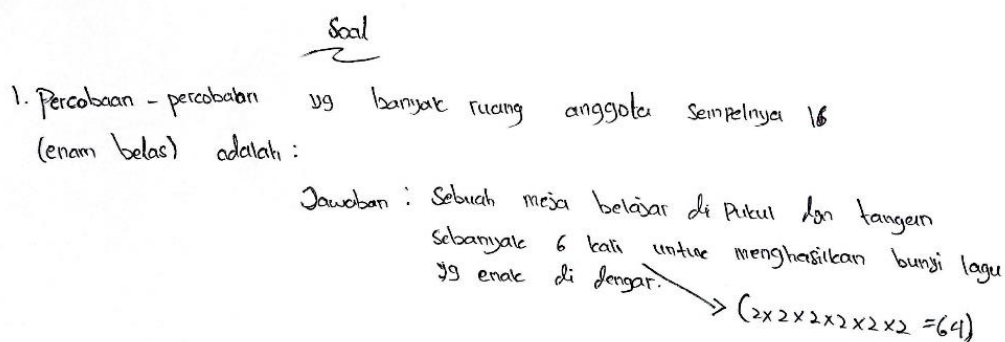 Soal
1. Percobaan - percobabn yg banyak ruang anggota sempelnya 16
(enam belas) adalah :
Jawaban : Sebuah meja belajar di pukul dgn tangan
sebanyak 6 kali untuk menghasilkan bunyi lagu
yg enak di dengar.
(2x2x2x2x2x2 =64)